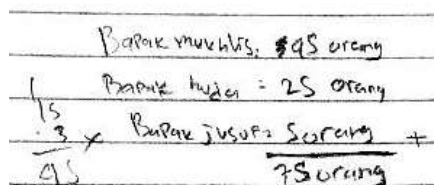 Bapak mukhlis: 45 orang
Bapak huda = 25 orang
Bapak jusuf = 5 orang +
75 orang
15
3 x
45